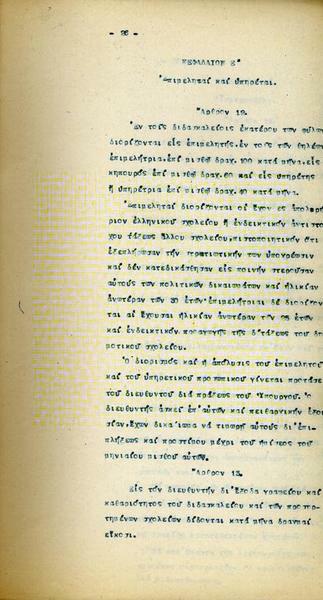 - 26 -
ΚΕΦΑΛΑΙΟΝ Ε'
Ἐπιμεληταί καί ὑπηρέται.
Ἄρθρον 12.
Ἐν τοῖς διδασκαλείοις ἑκατέρου τῶν φύλων
διορίζονται εἷς ἐπιμελητής, ἐν τοῖς τῶν θηλέων
ἐπιμελήτρια, ἐπί μισθῷ δραχ. 100 κατά μῆνα, εἷς
κηπουρός ἐπί μισθῷ δραχ. 60 καί εἷς ὑπηρέτης
ἤ ὑπηρέτρια ἐπί μισθῷ δραχ. 40 κατά μῆνα.
Ἐπιμεληταί διορίζονται οἱ ἔχοντες ἀπολυτή
ριον ἑλληνικοῦ σχολείου ἤ ἐνδεικτικόν ἀντιστοί
χου τάξεως ἄλλου σχολείου, πιστοποιητικόν ὅτι
ἐξεπλήρωσαν τήν στρατιωτικήν των ὑποχρέωσιν
καί δέν κατεδικάσθησαν εἰς ποινήν στεροῦσαν
αὐτούς τῶν πολιτικῶν δικαιωμάτων καί ἡλικίαν
ἀνωτέραν τῶν 30 ἐτῶν· ἐπιμελήτριαι δέ διορίζον
ται αἱ ἔχουσαι ἡλικίαν ἀνωτέραν τῶν 25 ἐτῶν
καί ἐνδεικτικόν προαγωγῆς τῆς δ' τάξεως τοῦ δη
μοτικοῦ σχολείου.
Ὁ διορισμός καί ἡ ἀπόλυσις τοῦ ἐπιμελητοῦ
καί τοῦ ὑπηρετικοῦ προσωπικοῦ γίνεται προτάσει
τοῦ διευθυντοῦ διά πράξεως τοῦ Ὑπουργοῦ. Ὁ
διευθυντής ἀσκεῖ ἐπ' αὐτῶν καί πειθαρχικήν ἐξου
σίαν, ἔχων δικαίωμα νά τιμωρῇ αὐτούς δι' ἐπι
πλήξεως καί προστίμου μέχρι τοῦ ἡμίσεος τοῦ
μηνιαίου μισθοῦ αὐτῶν.
Ἄρθρον 13.
Εἰς τόν διευθυντήν δι' ἔξοδα γραφείου καί
καθαριότητος τοῦ διδασκαλείου καί τῶν προσηρ
τημένων σχολείων δίδονται κατά μῆνα δραχμαί
εἴκοσι.